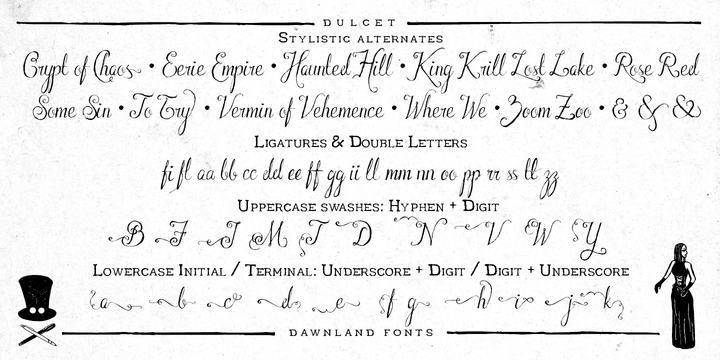 DULCET
STYLISTIC ALTERNATES
Crypt of Chaos • Eerie Empire • Haunted Hill • King Krill Lost Lake • Rose Red
Some Sin • To Try • Vermin of Vehemence • Where We • Zoom Zoo • & & &
LIGATURES & DOUBLE LETTERS
fi fl aa bb cc dd ee ff gg ii ll mm nn oo pp rr ss tt zz
UPPERCASE SWASHES: HYPHEN + DIGIT
B F I M T D N V W Y
LOWERCASE INITIAL / TERMINAL: UNDERSCORE + DIGIT / DIGIT + UNDERSCORE
a b c d e f g h i j k
DAWNLAND FONTS